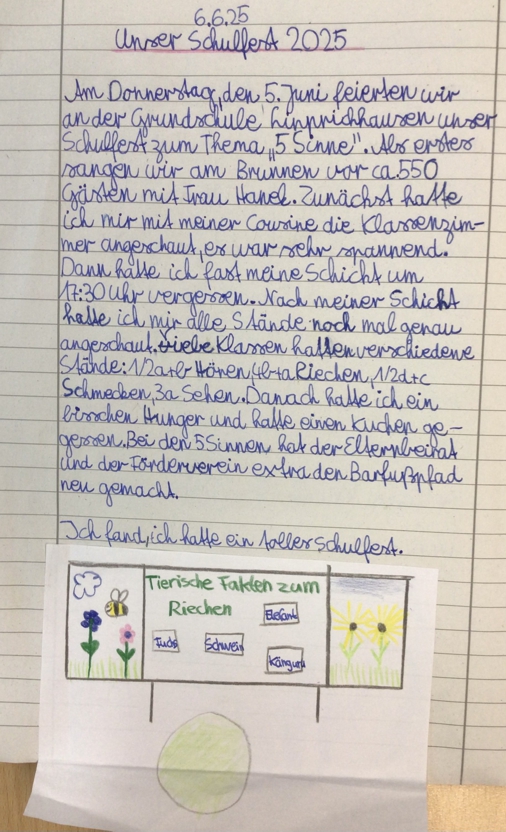 6.6.25
Unser Schulfest 2025
Am Donnerstag, den 5. Juni feierten wir
an der Grundschule Lipprichhausen unser
Schulfest zum Thema „5 Sinne“. Als erstes
sangen wir am Brunnen vor ca. 550
Gästen mit Frau Hanel. Zunächst hatte
ich mir mit meiner Cousine die Klassenzim-
mer angeschaut, es war sehr spannend.
Dann hätte ich fast meine Schicht um
17:30 Uhr vergessen. Nach meiner Schicht
hatte ich mir alle Stände noch mal genau
angeschaut. Klassen hatten verschiedene
Stände: 1/2a+b Hören, 4b+a Riechen, 1/2d+c
Schmecken, 3a Sehen. Danach hatte ich ein
bisschen Hunger und hatte einen Kuchen ge-
gessen. Bei den 5 Sinnen hat der Elternbeirat
und der Förderverein extra den Barfußpfad
neu gemacht.
Ich fand, ich hatte ein toller Schulfest.
Tierische Fakten zum
Riechen
Elefant
Fuchs Schwein
Känguru